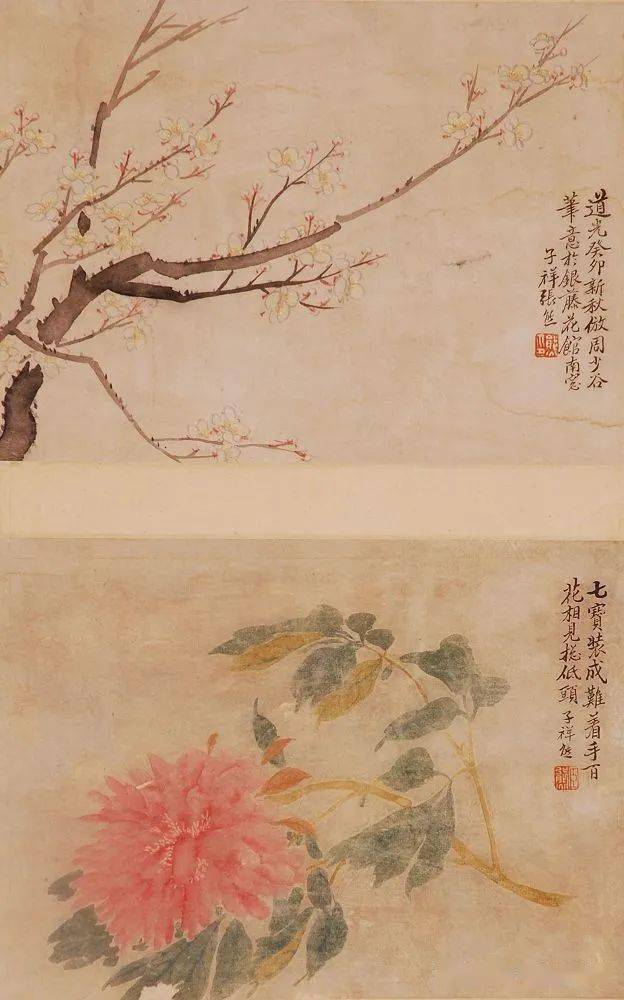 道光癸卯新秋倣周少谷
筆意於銀藤花館南窓
子祥張熊
七寶裝成難着手百
花相見捴低頭 子祥熊